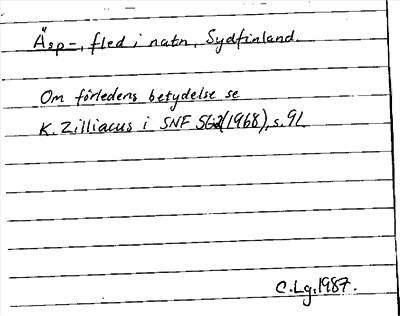 Äsp-, fled i natn, Sydfinland.
Om förledens betydelse se
K. Zilliacus i SNF 562 (1968), s. 91.
C.Lg. 1987.